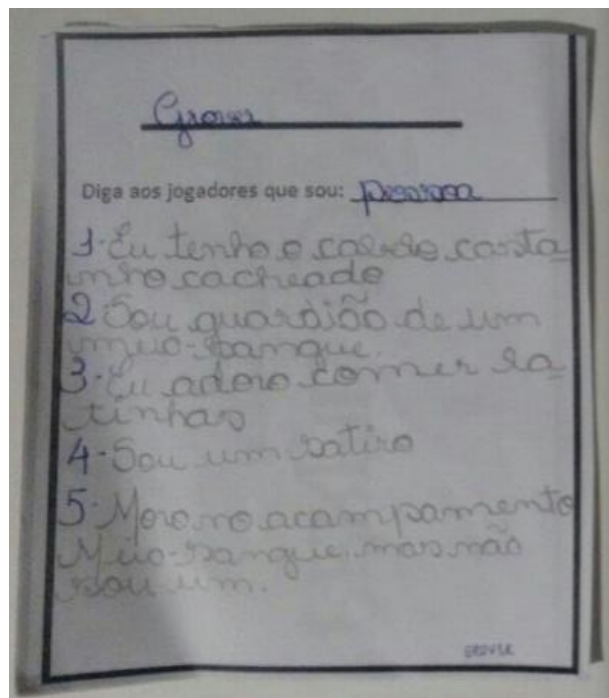 Grover
Diga aos jogadores que sou: pessoa
1-Eu tenho o cabelo casta
nho cacheado
2 Sou guardião de um
meio-sangue.
3-Eu adoro comer la
tinhas
4-Sou um satiro
5-Moro no acampamento
Meio-sangue, mas não
sou um.
GROVER